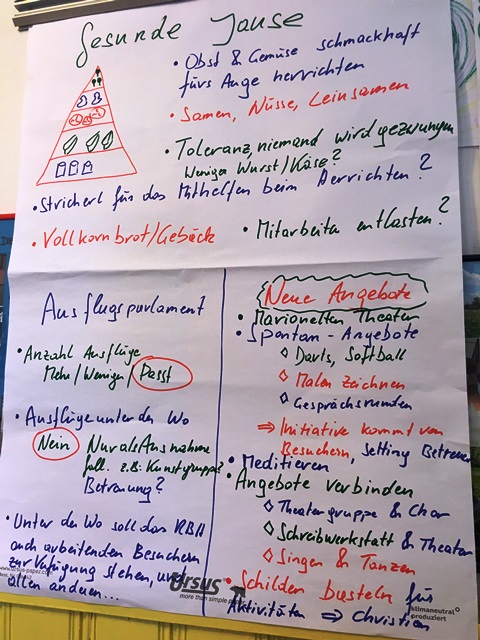 Gesunde Jause
• Obst & Gemüse schmackhaft
fürs Auge herrichten
• Samen, Nüsse, Leinsamen
• Toleranz, niemand wird gezwungen
Weniger Wurst/Käse?
• Stricherl für das Mithelfen beim Herrichten?
• Vollkornbrot/Gebäck
• Mitarbeita entlasten?
Ausflugsparlament
• Anzahl Ausflüge
Mehr/Weniger/Passt
• Ausflüge unter da Wo
Nein Nur als Ausnahme
fall. z.B: Kunstgruppe?
Betreuung?
• Unter da Wo soll das
auch arbeitenden Besuchern
zur Verfügung stehen, und
allen anderen...
Neue Angebote
• Marionetten Theater
• Spontan-Angebote
◊ Darts, Softball
◊ Malen zeichnen
◊ Gesprächsrunden
⇒ Initiative kommt von
Besuchern, Setting Betreuer
• Meditieren
• Angebote verbinden
◊ Theatergruppe & Chor
◊ Schreibwerkstatt & Theater
◊ Singen & Tanzen
• Schilder basteln für
Aktivitäten ⇒ Christian
Ursus
more than simple
klimaneutral
produziert